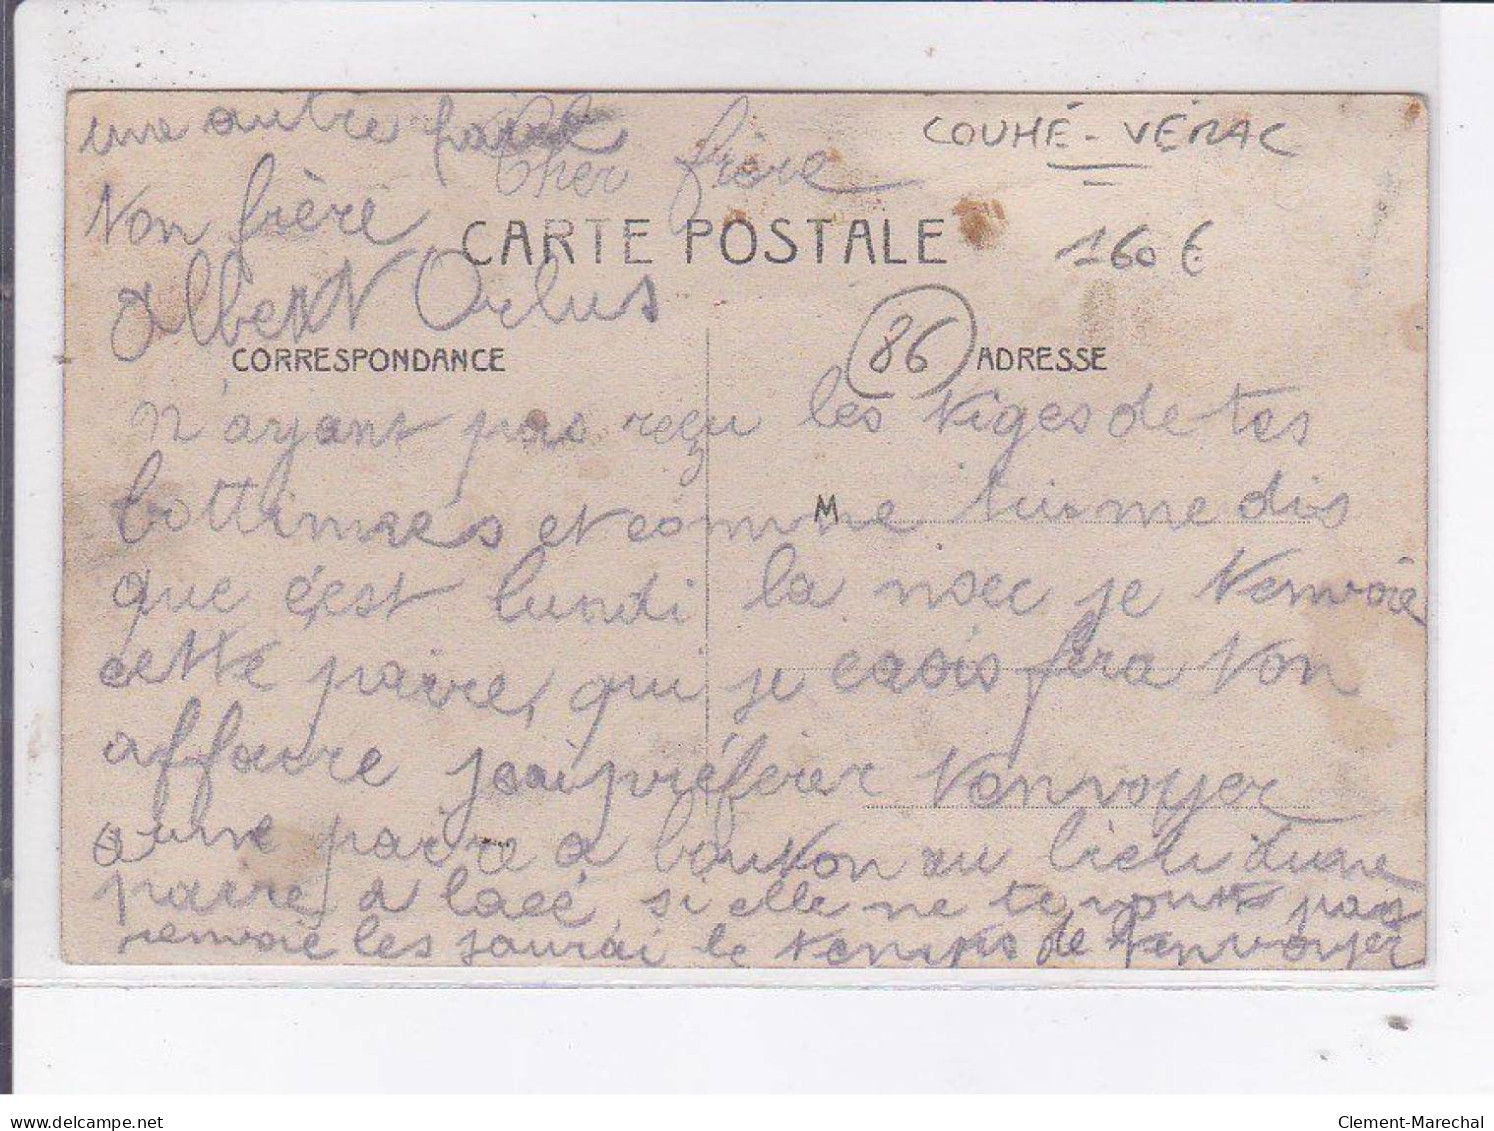 une autre paire
Cher frère
COUHÉ-VÉRAC
Ton frère
CARTE POSTALE
160 €
Albert Orlus
CORRESPONDANCE
86
ADRESSE
n'ayant pas reçu les tiges de tes
bottimes et comme tu me dis
M
que c'est lundi la noec je t'envoie
cette paire, qui je crois fera ton
affaire j'ai préferer t'envoyer
une paire a bouton au lieu d'une
paire a lacé, si elle ne te vont pas
renvoie les j'aurai le temps de t'envoyer
delcampe.net
Clement-Marechal